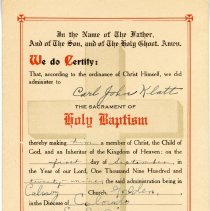 In the Name of the Father,
And of The Son, and of The Holy Ghost. Amen.
We do Certify:
That, according to the ordinance of Christ Himself, we did
administer to
Carl John Klatt
THE SACRAMENT OF
Holy Baptism
thereby making him a member of Christ, the Child
of God, and an Inheritor of the Kingdom of Heaven: on the
first day of September, in
the Year of our Lord, One Thousand Nine Hundred and
twenty- the said administration being in
Calvary Church, Golden,
in the Diocese of Colorado